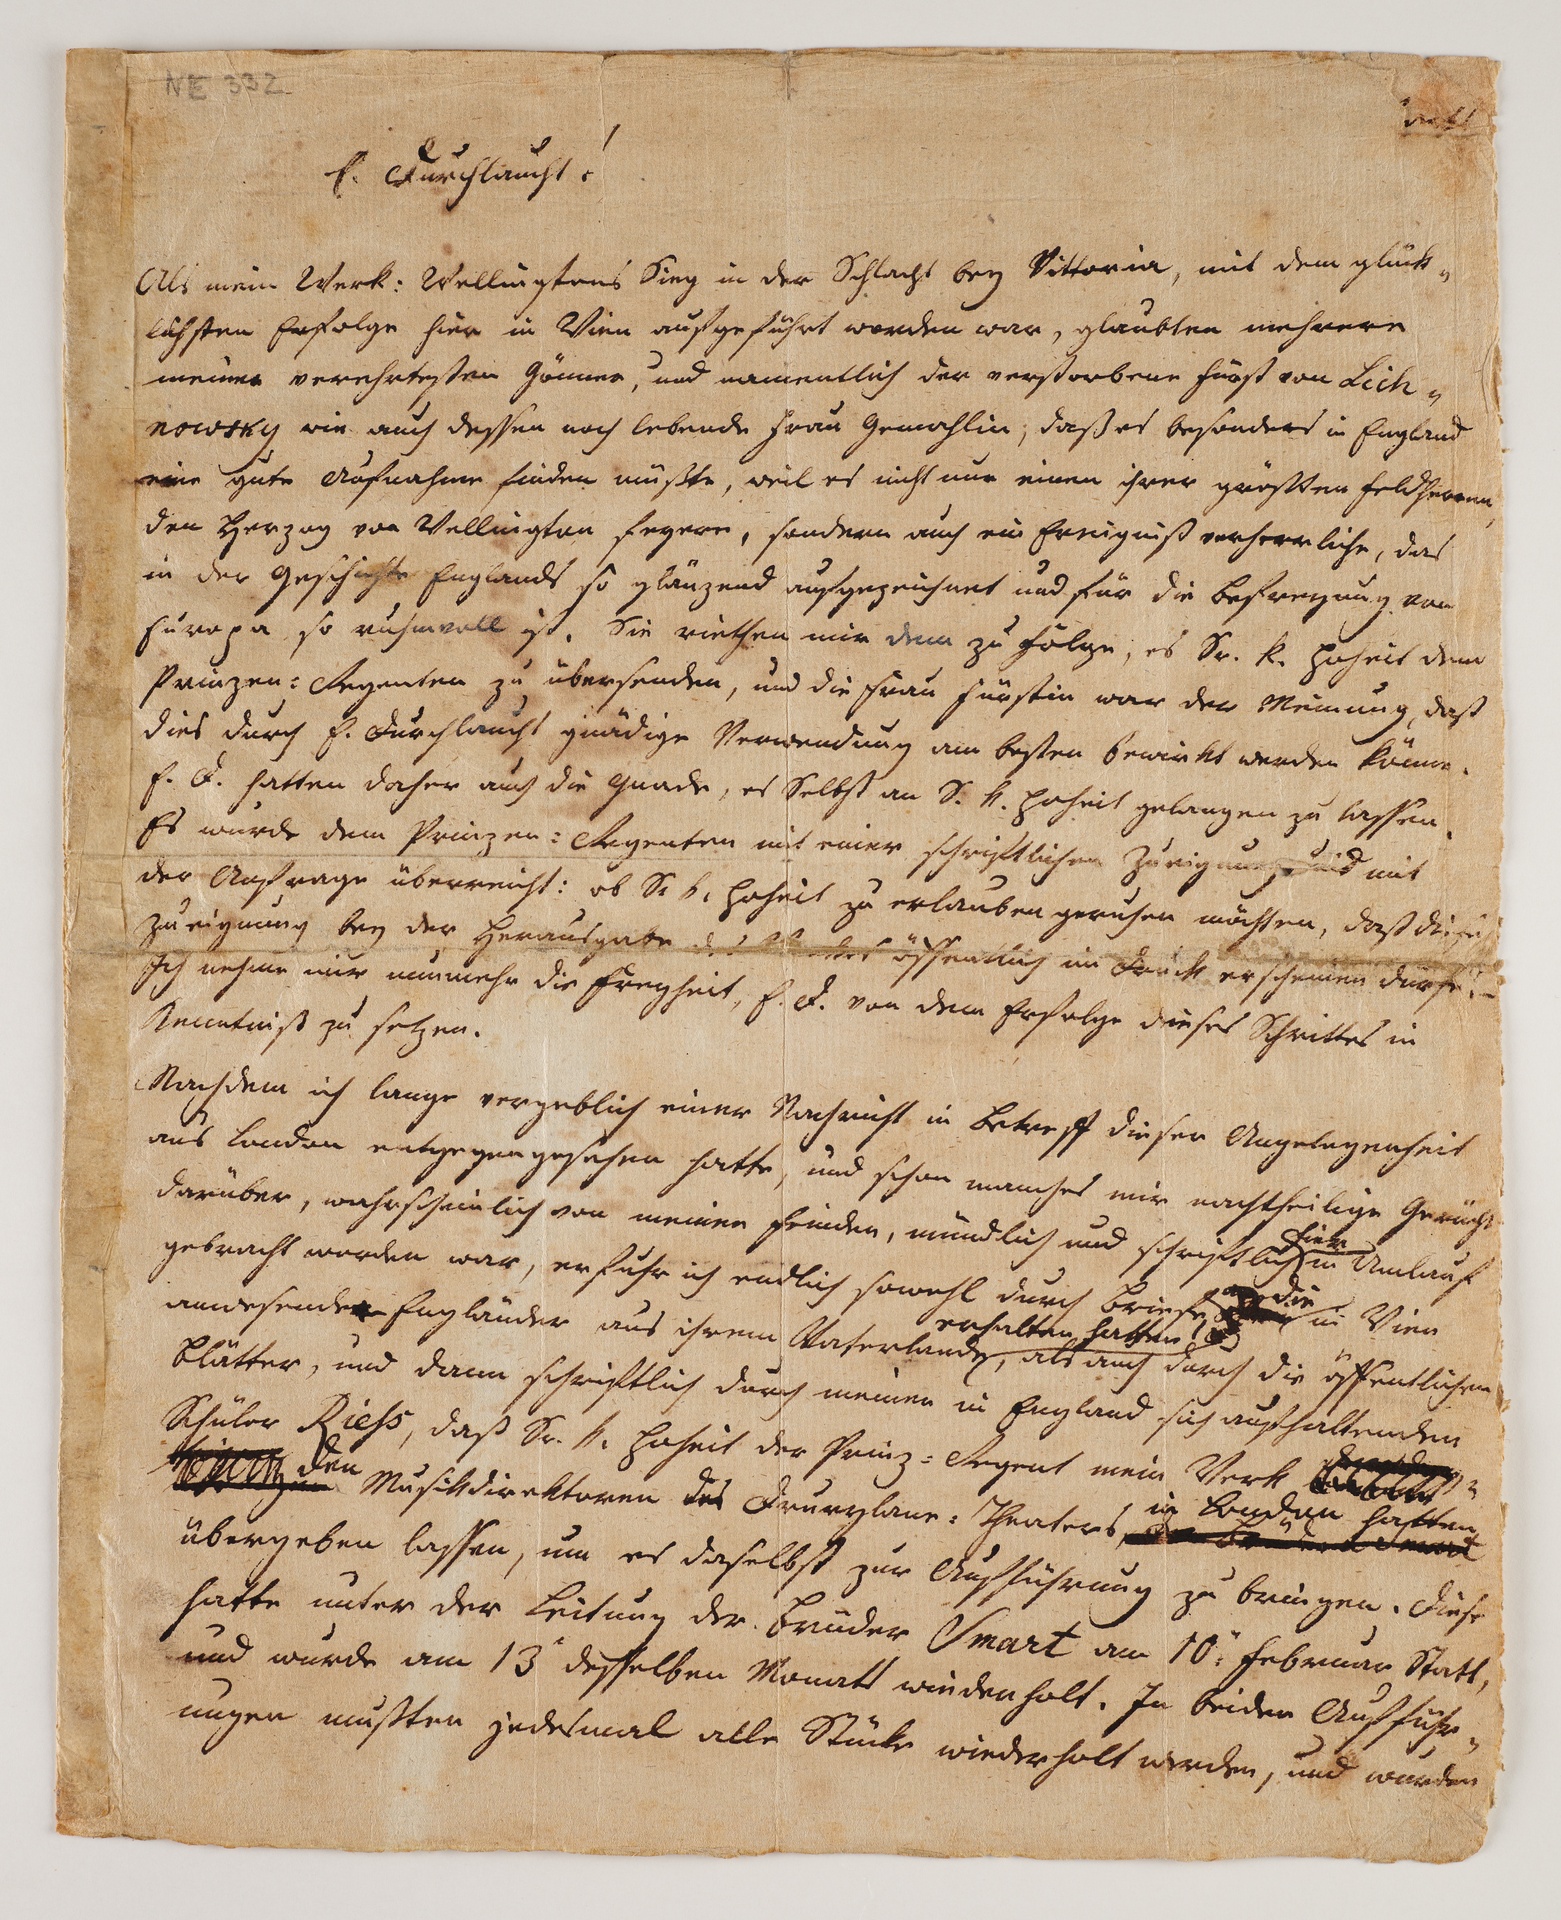 NE 332
E. Durchlaucht!
Als mein Werk: Wellingtons Sieg in der Schlacht bey Vittoria, mit dem glück„
lichsten Erfolge hier in Wien aufgeführt worden war, glaubten mehrere
meiner verehrtesten Gönner, und namentlich der verstorbene Fürst von Lich„
nowsky wie auch dessen noch lebende Frau Gemahlin, daß es besonders in England
eine gute Aufnahme finden müßte, weil es nicht nur einen ihrer größten Feldherren,
den Herzog von Wellington feyere, sondern auch ein Ereigniß verherrliche, das
in der Geschichte Englands so glänzend aufgezeichnet und für die Befreyung von
Europa so ruhmvoll ist. Sie riethen mir dem zu Folge, es Sr. k. Hoheit dem
Prinzen=Regenten zu übersenden, und die Frau Fürstin war der Meinung, daß
dies durch E. Durchlaucht gnädige Verwendung am besten bewirkt werden könne.
E. D. hatten daher auch die Gnade, es Selbst an S. k. Hoheit gelangen zu lassen.
Es wurde dem Prinzen=Regenten mit einer schriftlichen Zueignung und mit
der Anfrage überreicht: ob Sr. k. Hoheit zu erlauben geruhen möchten, daß die
Zueignung bey der Herausgabe des Werkes öffentlich im Druck erscheinen dürfe.–
Ich nehme mir nunmehr die Freyheit, E. D. von dem Erfolge dieses Schrittes in
Kenntniß zu setzen.
Nachdem ich lange vergeblich einer Nachricht in Betreff dieser Angelegenheit
aus London entgegengesehen hatte, und schon manches mir nachtheilige Gerücht
darüber, wahrscheinlich von meinen Feinden, mündlich und schriftlich hier in Umlauf
gebracht worden war, erfuhr ich endlich sowohl durch Briefe, die in Wien
anwesende Engländer aus ihrem Vaterlande erhalten hatten, als auch durch die öffentlichen
Blätter, und dann schriftlich durch meinen in England sich aufhaltenden
Schüler Riess, daß Sr. k. Hoheit der Prinz=Regent mein Werk
den Musikdirektoren des Drurylane=Theaters in London hatten
übergeben lassen, um es daselbst zur Aufführung zu bringen. Diese
hatte unter der Leitung der Brüder Smart am 10. Februar Statt,
und wurde am 13 desselben Monats wiederholt. In beiden Aufführ„
ungen mußten jedesmal alle Stücke wiederholt werden, und wurden